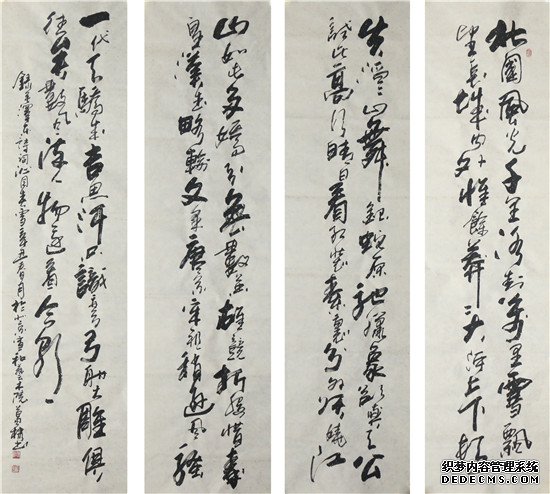 北國風光千里冰封萬里雪飄
望長城内外惟餘莽莽大河上下頓
失滔滔山舞銀蛇原馳蠟象欲與天公
試比高須晴日看紅裝素裹分外妖嬈江
山如此多嬌引無數英雄競折腰惜秦
皇漢武略輸文采唐宗宋祖稍遜風騷
一代天驕成吉思汗只識彎弓射大雕俱
往矣數風流人物還看今朝
錄毛澤東詩詞沁園春雪辛丑
织梦内容管理系统
DEDECMS.COM